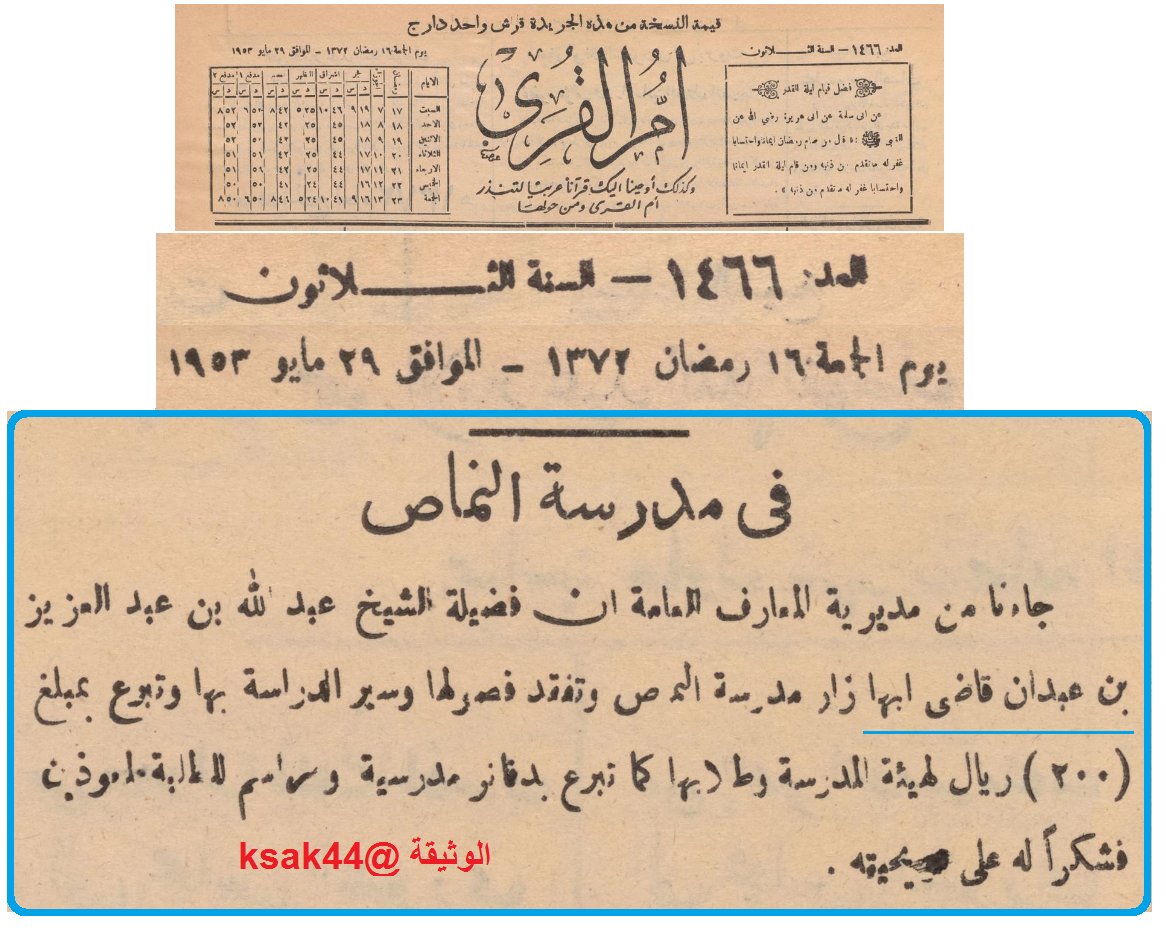 قيمة النسخة من هذه الجريدة قرش واحد دارج
العدد ١٤٦٦ – السنة الثلاثون
يوم الجمعة ١٦ رمضان ١٣٧٢ – الموافق ٢٩ مايو ١٩٥٣
فضل قيام ليلة القدر
عن ابى سلمة عن ابى هريرة رضي الله عن
النبي ﷺ قال من صام رمضان ايمانا واحتسابا
غفر له ماتقدم من ذنبه ومن قام ليلة القدر ايمانا
واحتسابا غفر له ماتقدم من ذنبه
أم القرى
وكذلك أوحينا اليك قرآنا عربيا لتنذر
أم القرى ومن حولها
الايام
السبت
الاحد
الاثنين
الثلاثاء
الاربعاء
الخميس
الجمعة
العدد ١٤٦٦ – السنة الثـــــلاثون
يوم الجمعة ١٦ رمضان ١٣٧٢ – الموافق ٢٩ مايو ١٩٥٣
فى مدرسة النماص
جاءنا من مديرية المعارف العامة ان فضيلة الشيخ عبد الله بن عبد العزيز
بن عبدان قاضى ابها زار مدرسة النماص وتفقد فصولها وسير الدراسة بها وتبرع بمبلغ
(٢٠٠) ريال لهيئة المدرسة وطلابها كما تبرع بدفاتر مدرسية ومراسم للطلبة
فشكراً له على
الوثيقة @ksak44